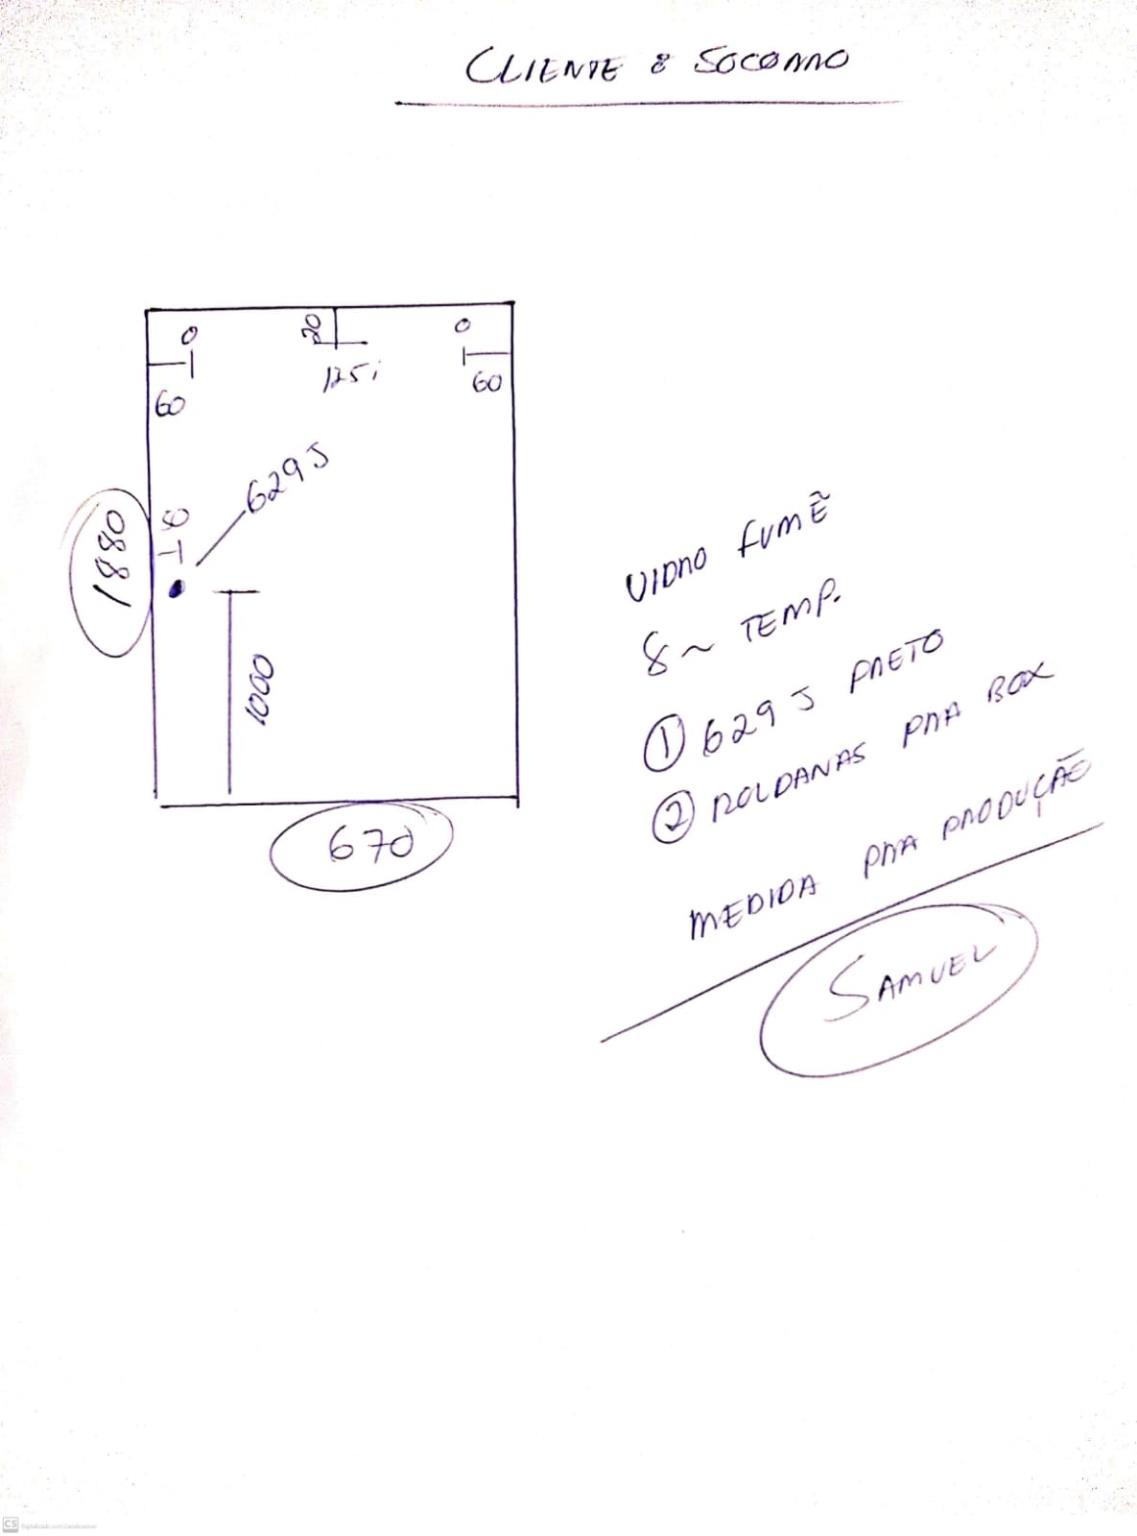 CLIENTE : SOCORRO
0
20
0
60
125i
60
629 J
1880
1000
670
VIDRO FUMÊ
8 ~ TEMP.
① 629 J PRETO
② ROLDANAS PRA BOX
MEDIDA PRA PRODUÇÃO
SAMUEL
CS